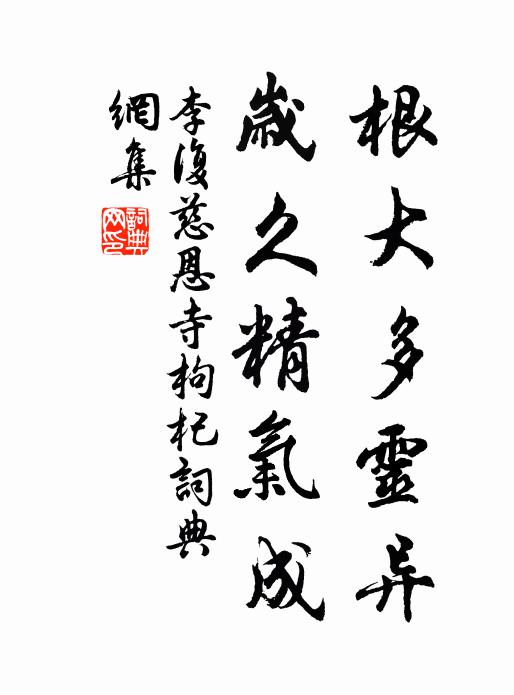 根大多靈异
歲久精氣成
李復慈恩寺枸杞詞典
網集
詞典
网印